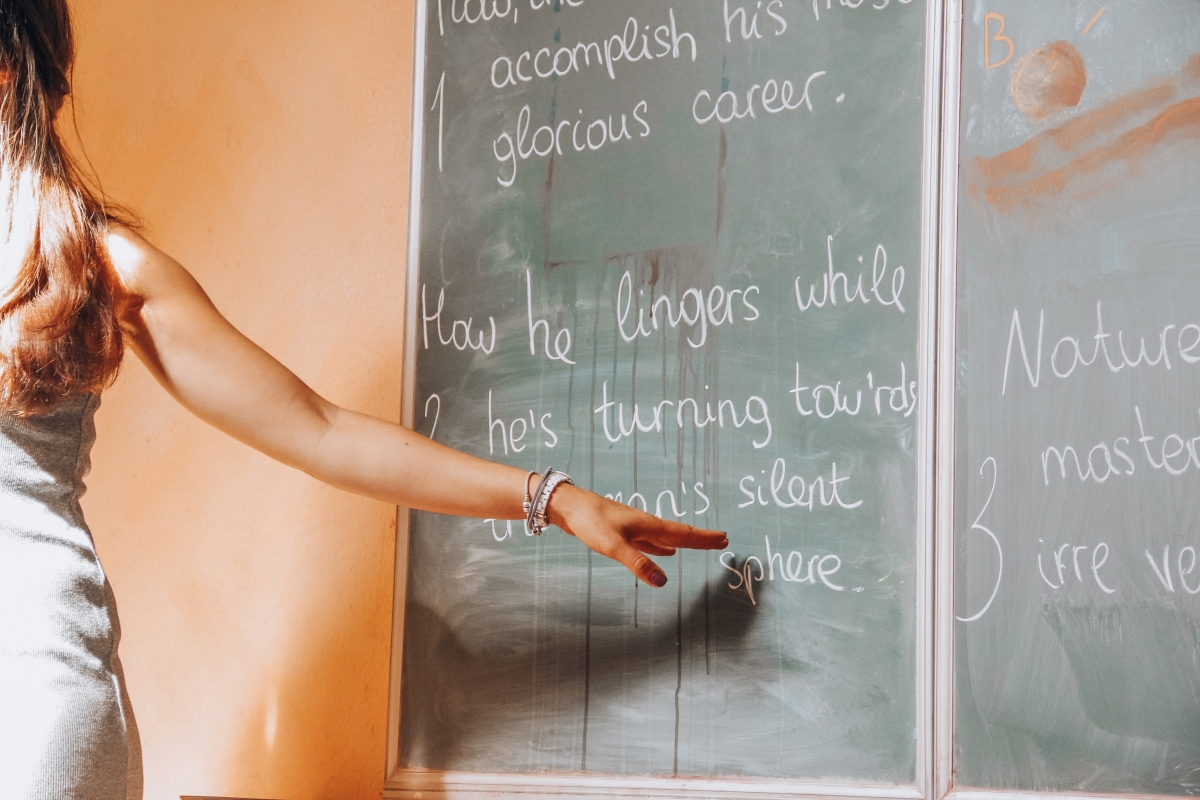 accomplish his most
1
glorious career.
How he lingers while
2 he's turning tow'rds
silent
sphere.
B
Nature
3